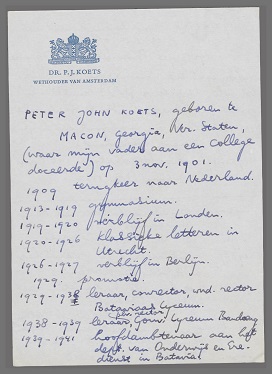 DR. P. J. KOETS
WETHOUDER VAN AMSTERDAM
PETER JOHN KOETS, geboren te
MACON, Georgia, Ver. Staten,
(waar mijn vader aan een College
doceerde) op 3 nov. 1901.
1909 terugkeer naar Nederland.
1913-1919 gymnasium.
1919-1920 verblijf in Londen.
1920-1926 klassieke letteren in
Utrecht.
1926-1927 verblijf in Berlijn.
1929. promotie.
1929-1938 leraar, conrector, wnd. rector
Bataviaas Lyceum.
1938-1939 leraar, Gouv. Lyceum Bandoeng
1939-1941 hoofdambtenaar aan het
dept. van Onderwijs en Ere-
dienst in Batavia